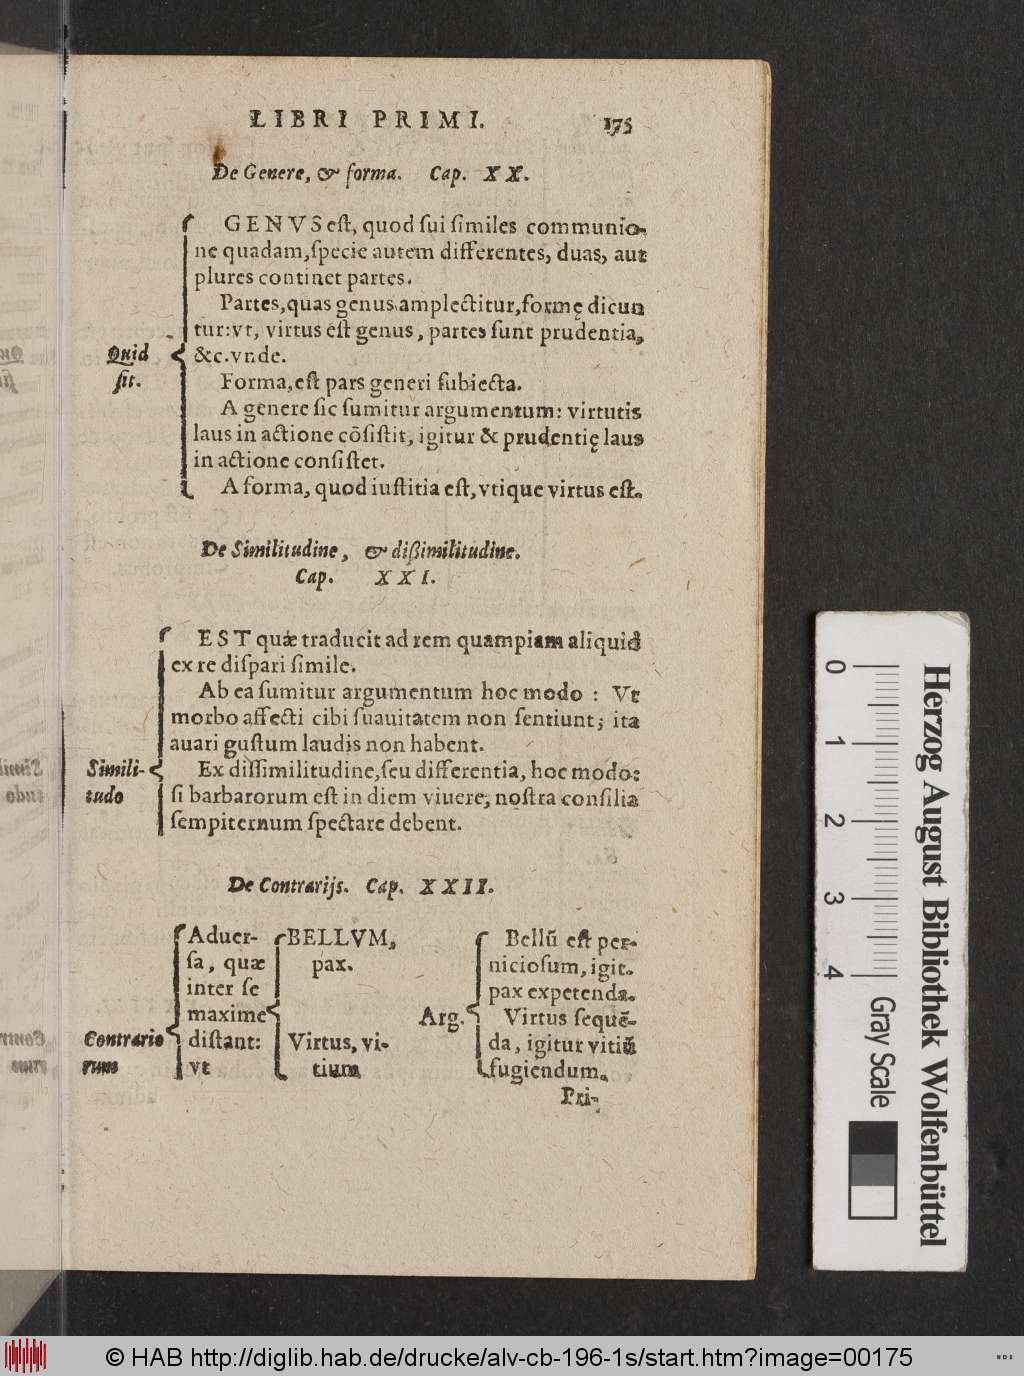 LIBRI PRIMI. 175
De Genere, & forma. Cap. XX.
GENVS eſt, quod ſui ſimiles communio-
ne quadam, ſpecie autem differentes, duas, aut
plures continet partes.
Partes, quas genus amplectitur, formę dicun
tur: vt, virtus eſt genus, partes ſunt prudentia,
&c. vnde.
Quid
ſit.
Forma, eſt pars generi ſubiecta.
A genere ſic ſumitur argumentum: virtutis
laus in actione cōſiſtit, igitur & prudentię laus
in actione conſiſtet.
A forma, quod iuſtitia eſt, vtique virtus eſt.
De Similitudine, & dißimilitudine.
Cap. XXI.
EST quæ traducit ad rem quampiam aliquid
ex re diſpari ſimile.
Ab ea ſumitur argumentum hoc modo: Vt
morbo affecti cibi ſuauitatem non ſentiunt; ita
auari guſtum laudis non habent.
Simili-
tudo
Ex diſſimilitudine, ſeu differentia, hoc modo:
ſi barbarorum eſt in diem viuere, noſtra conſilia
ſempiternum ſpectare debent.
De Contrarijs. Cap. XXII.
Contrario
rum
Aduer-
ſa, quæ
inter ſe
maxime
diſtant:
vt
BELLVM,
pax.
Virtus, vi-
tium
Arg.
Bellū eſt per-
nicioſum, igit.
pax expetenda.
Virtus ſequē-
da, igitur vitiū
fugiendum.
Pri-
0 1 2 3 4
Gray Scale
Herzog August Bibliothek Wolfenbüttel
© HAB http://diglib.hab.de/drucke/alv-cb-196-1s/start.htm?image=00175